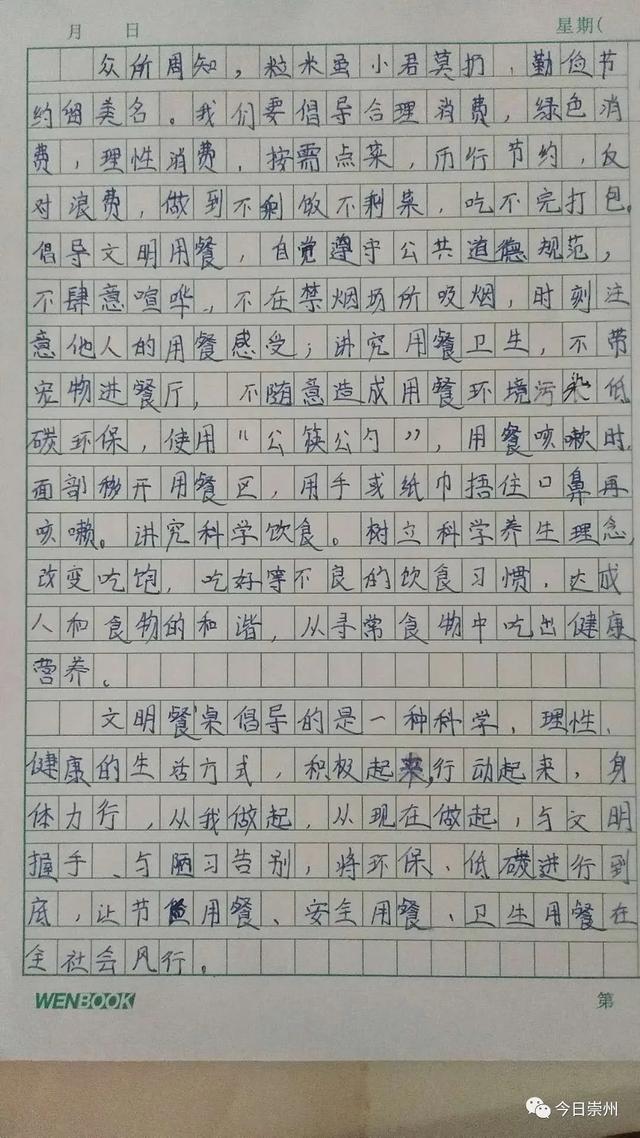 月 日 星期(
众所周知，粒米虽小君莫扔，勤俭节
约留美名。我们要倡导合理消费，绿色消
费，理性消费，按需点菜，历行节约，反
对浪费，做到不剩饭不剩菜，吃不完打包。
倡导文明用餐，自觉遵守公共道德规范，
不肆意喧哗、不在禁烟场所吸烟，时刻注
意他人的用餐感受；讲究用餐卫生，不带
宠物进餐厅，不随意造成用餐环境污染低
碳环保，使用“公筷公勺”，用餐咳嗽时，
面部移开用餐区，用手或纸巾捂住口鼻再
咳嗽。讲究科学饮食。树立科学养生理念，
改变吃饱，吃好等不良的饮食习惯，达成
人和食物的和谐，从寻常食物中吃出健康
营养。
文明餐桌倡导的是一种科学、理性、
健康的生活方式，积极起来，行动起来，身
体力行，从我做起，从现在做起，与文明
握手、与陋习告别，将环保、低碳进行到
底，让节俭用餐、安全用餐、卫生用餐在
全社会风行。
WENBOOK 第
今日崇州